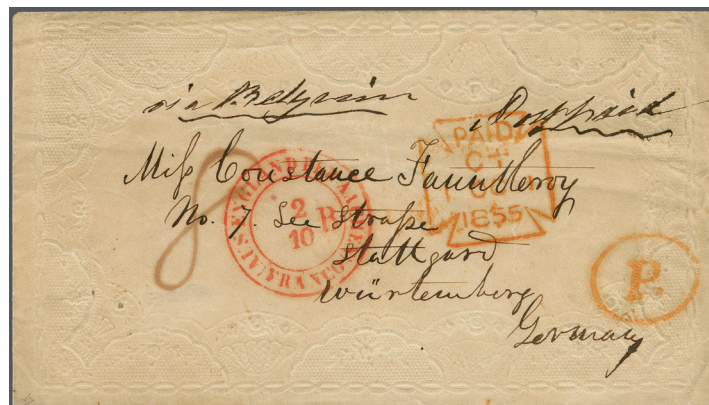 via Belgium
Postpaid
Miſs Constance Fauntleroy
No. 7. See Straſse
Stuttgard
Würtemberg
Germany
8
PAID
1855
2
10
R
FRANCO
P.